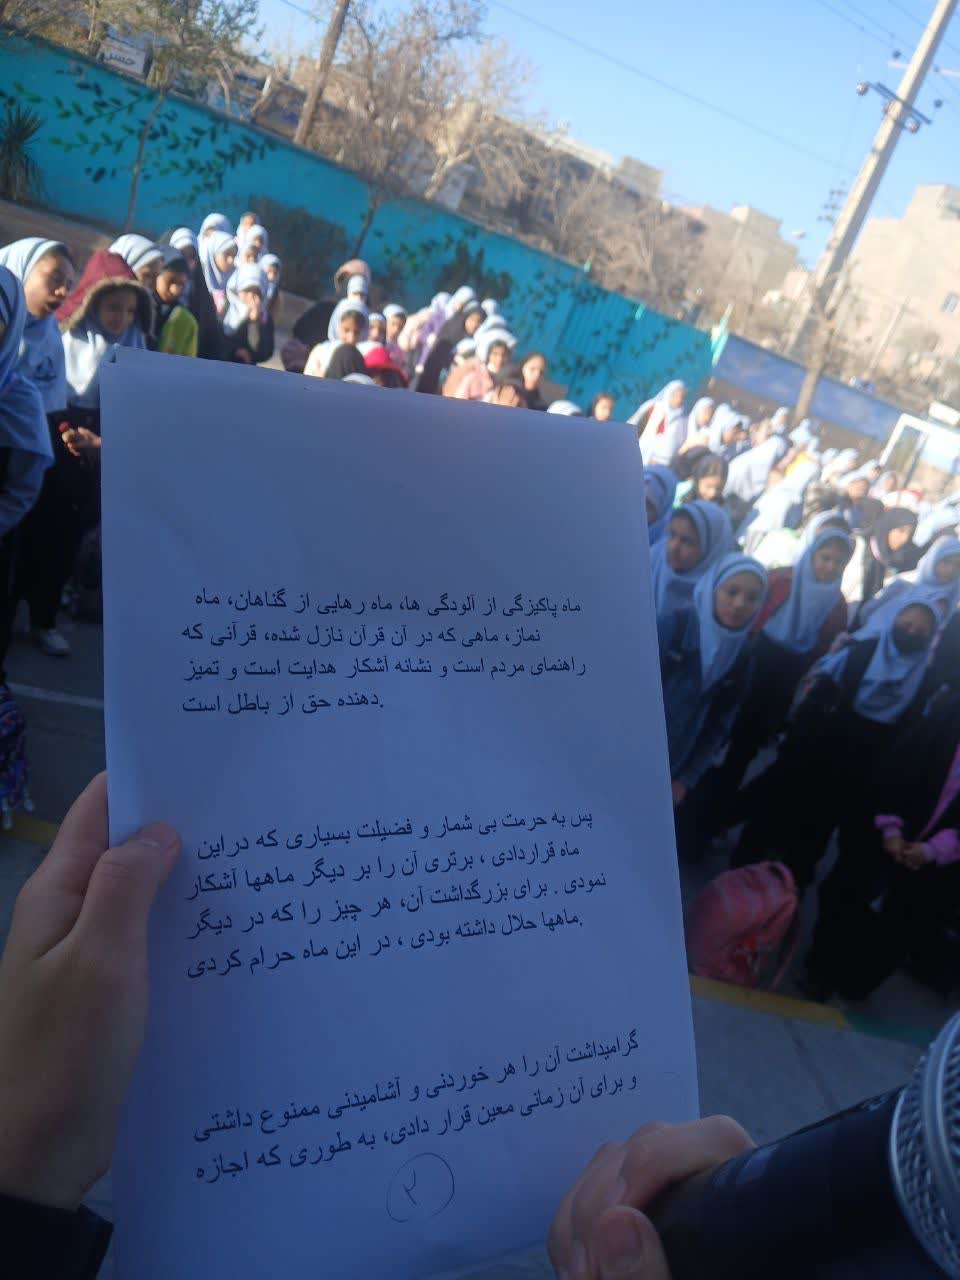 حسن
ماه پاکیزگی از آلودگی ها، ماه رهایی از گناهان، ماه
نماز، ماهی که در آن قرآن نازل شده، قرآنی که
راهنمای مردم است و نشانه آشکار هدایت است و تمیز
دهنده حق از باطل است.
پس به حرمت بی شمار و فضیلت بسیاری که دراین
ماه قراردادی ، برتری آن را بر دیگر ماهها آشکار
نمودی . برای بزرگداشت آن، هر چیز را که در دیگر
ماهها حلال داشته بودی ، در این ماه حرام کردی.
گرامیداشت آن را هر خوردنی و آشامیدنی ممنوع داشتی
و برای آن زمانی معین قرار دادی، به طوری که اجازه
۲